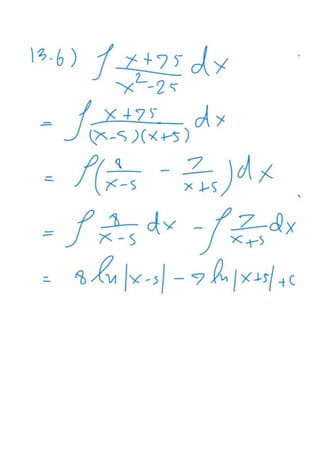 13.6) ∫ x+75 / x²-25 dx
= ∫ x+75 / (x-5)(x+5) dx
= ∫( 8 / x-5 - 7 / x+5 )dx
= ∫ 8 / x-5 dx - ∫ 7 / x+5 dx
= 8 ln|x-5| - 7 ln|x+5| + c